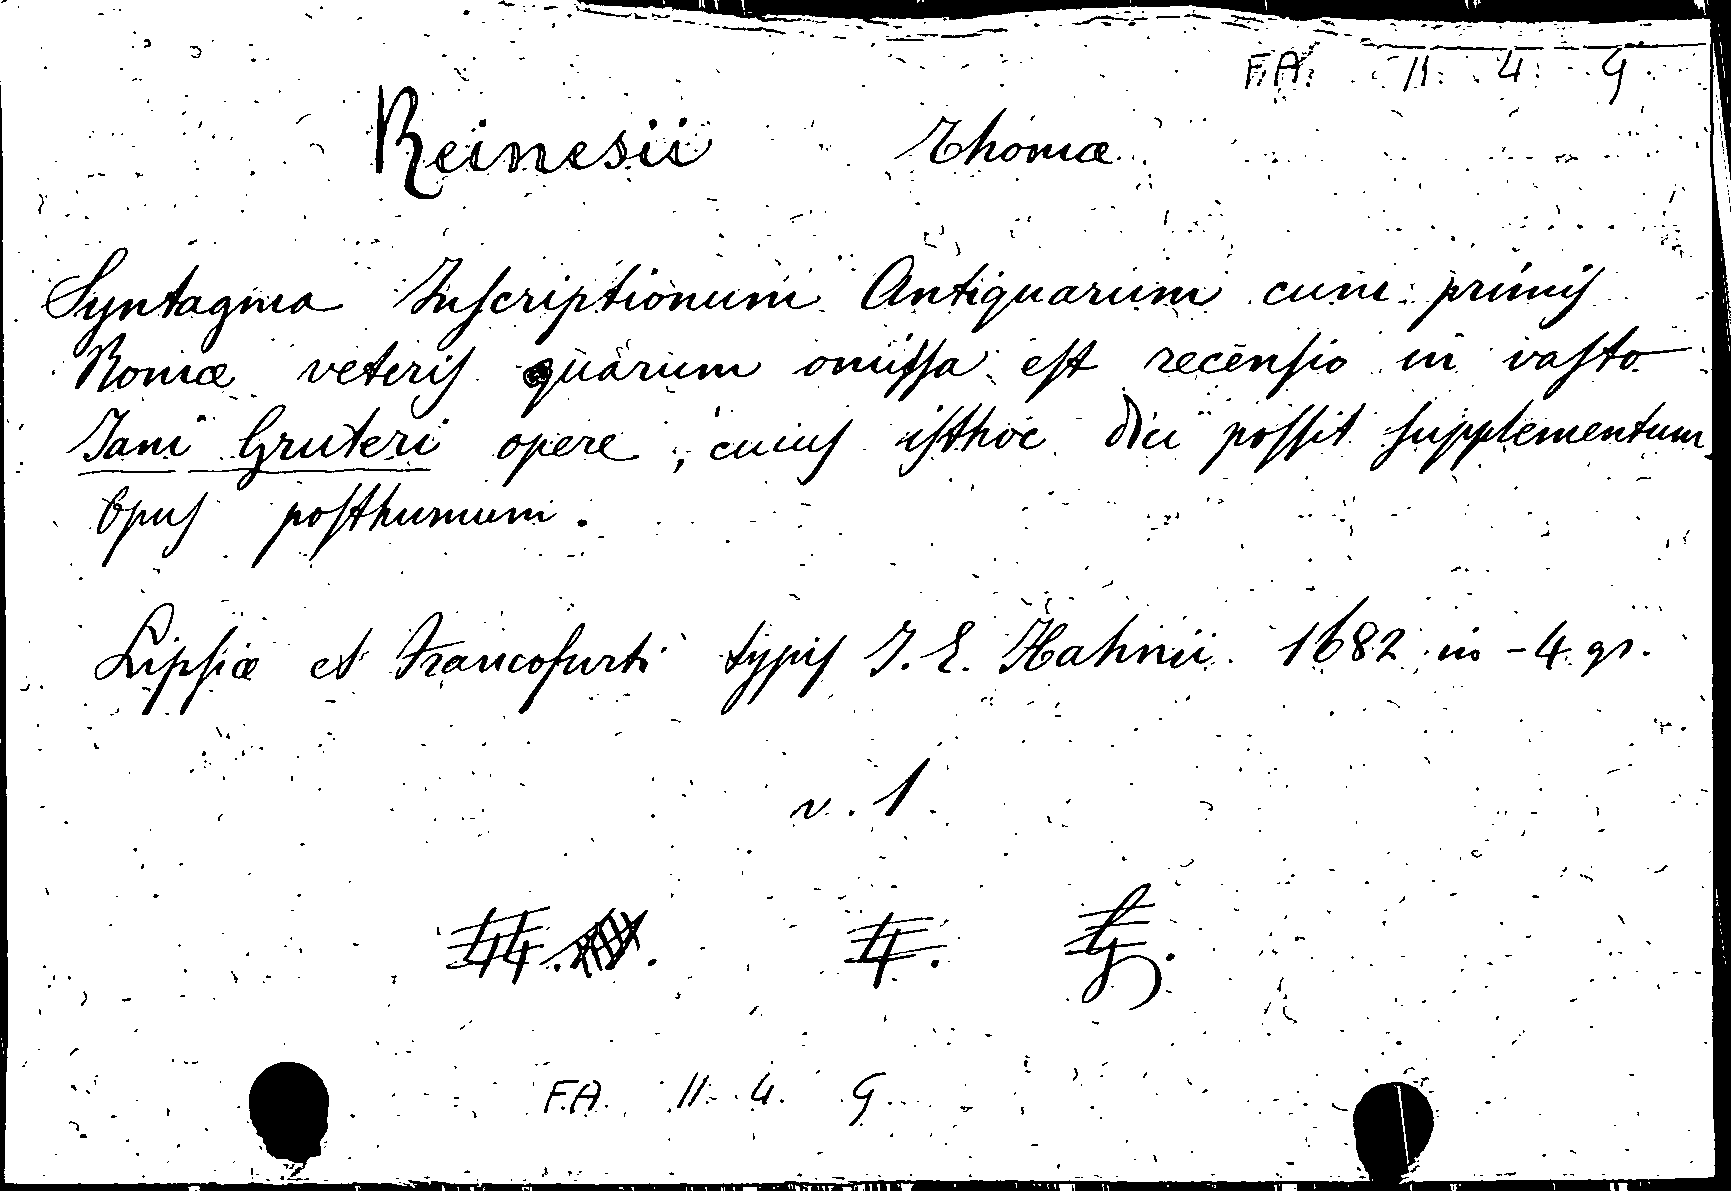 F.A. II. 4. G
Reinesii Thomæ
Syntagma Inscriptionum Antiquarum cum primis
Romæ veteris quarum omissa est recensio in vasto
Jani Gruteri opere, cuius isthoc dici possit supplementum
Opus posthumum.
Lipsiæ et Francofurti typis J. E. Hahnii. 1682 in-4 gr.
v. 1.
4. G.
F.A. II. 4. G